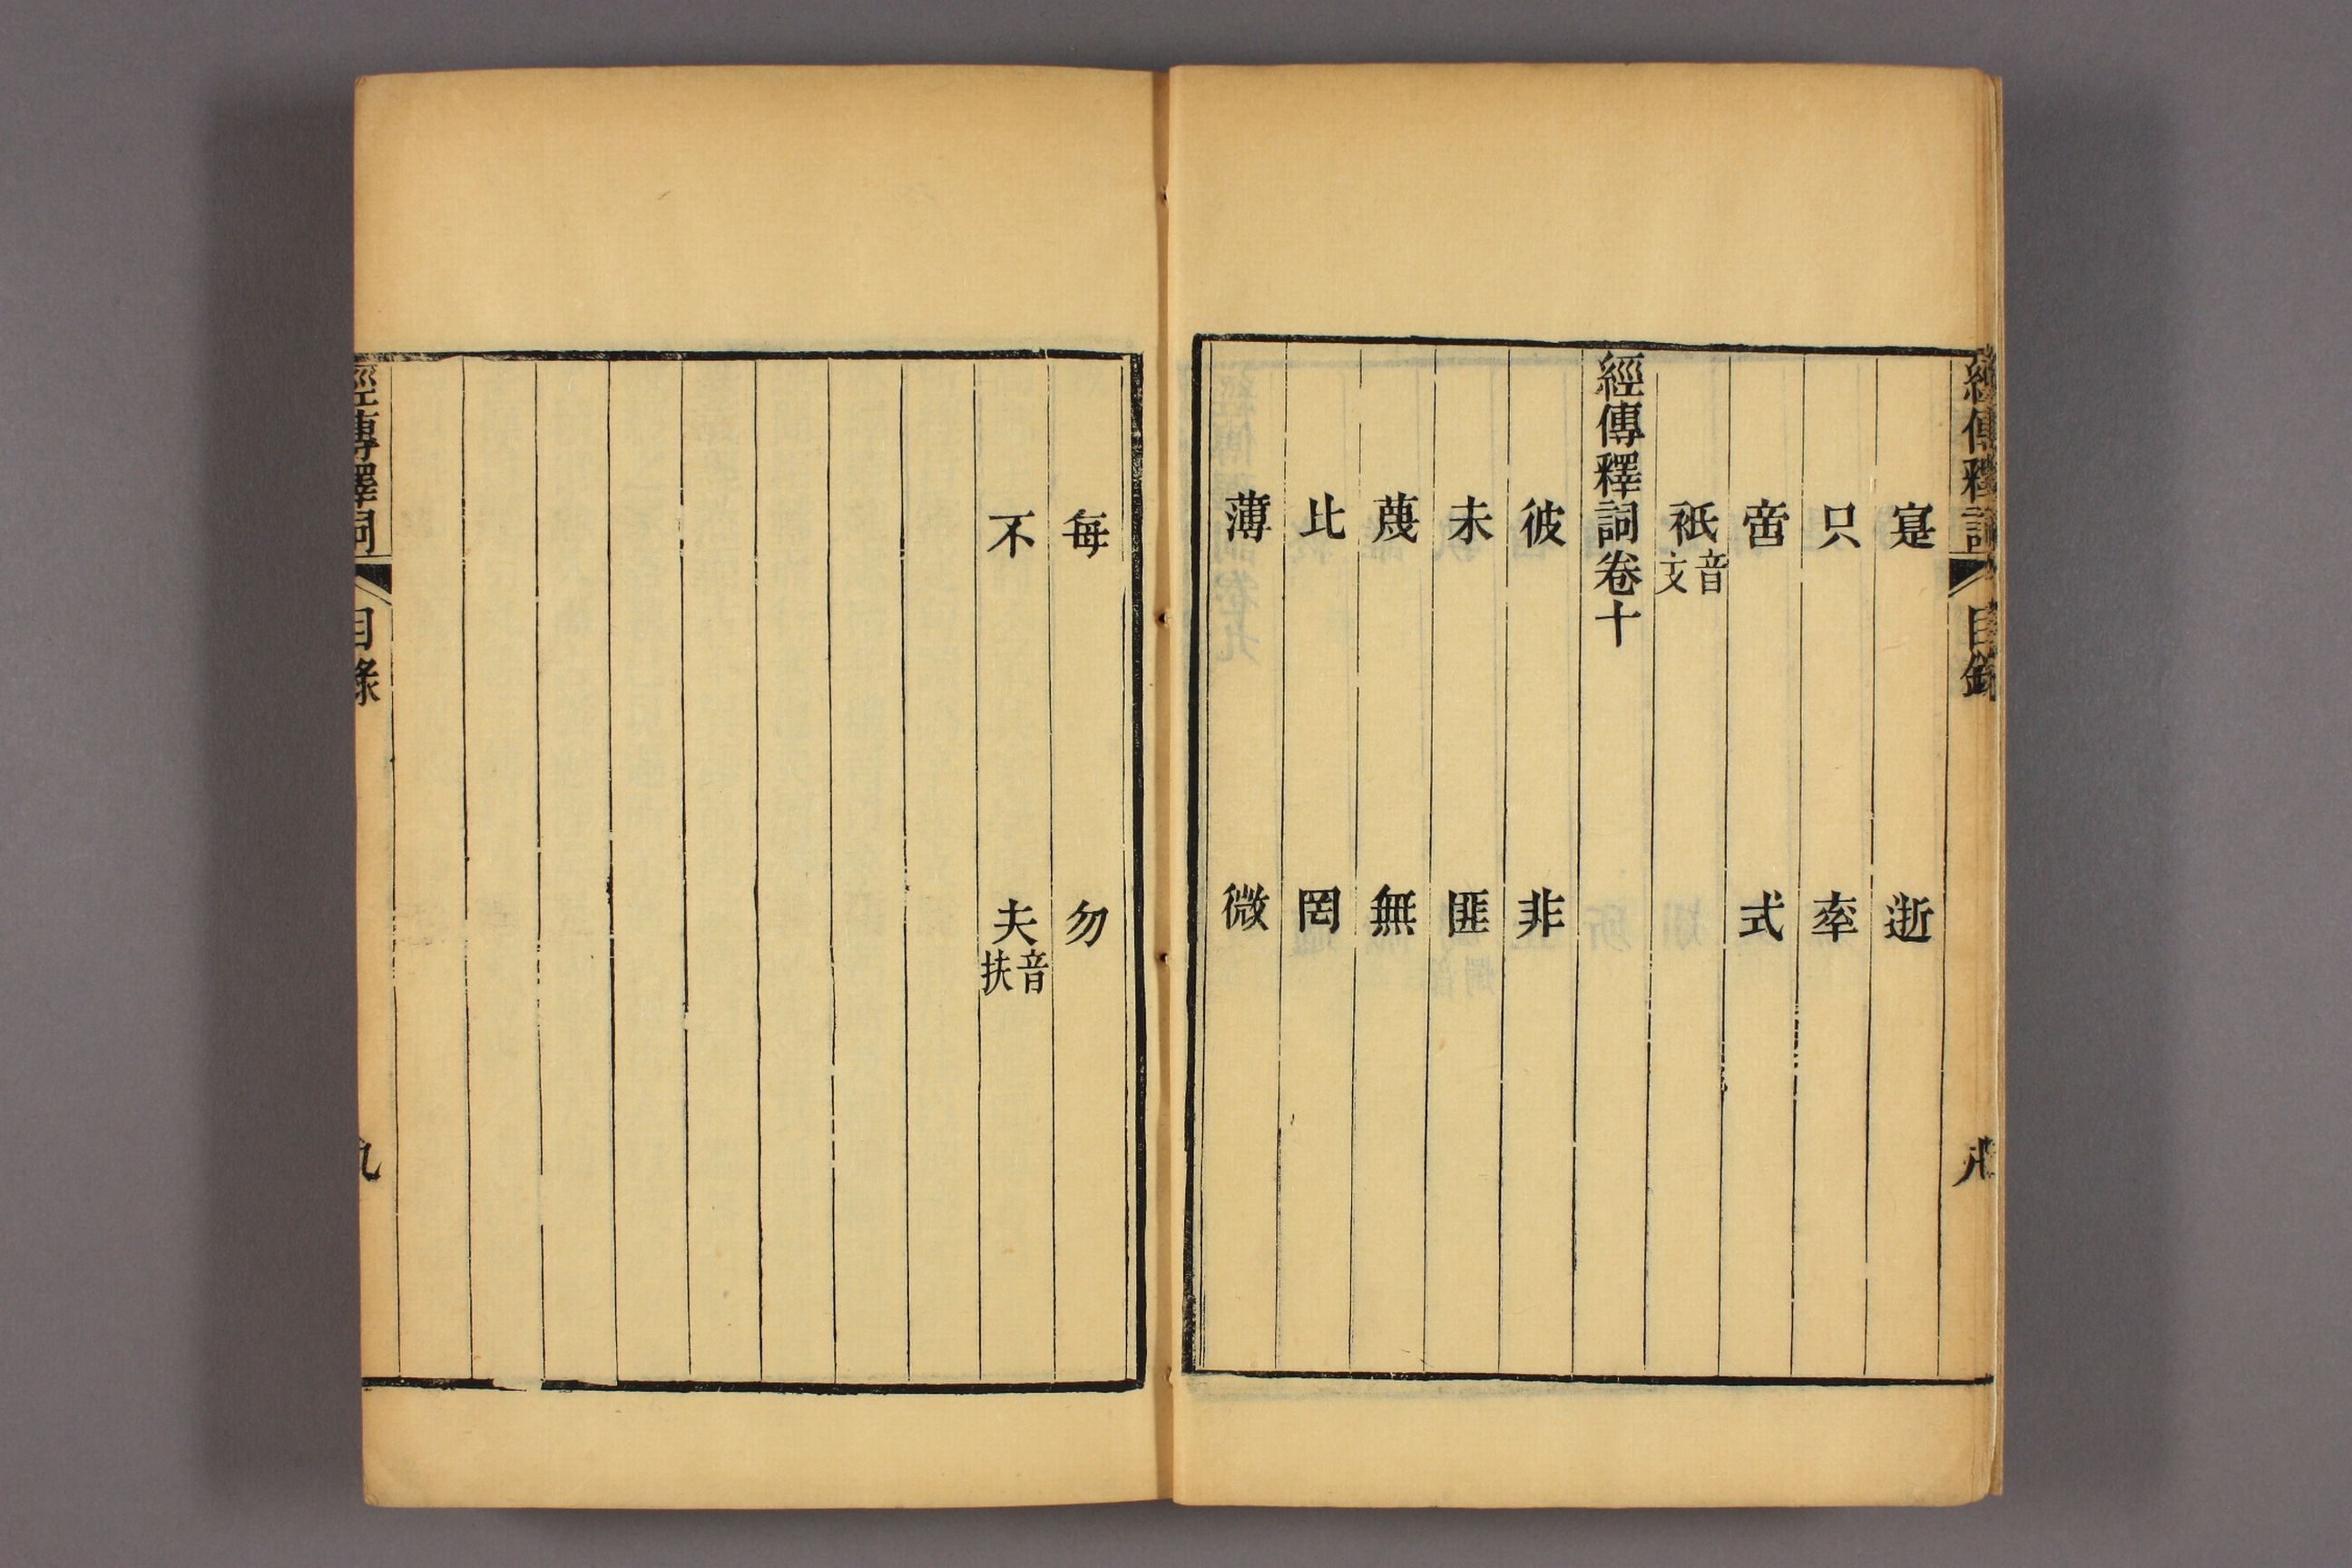 經傳釋詞 目錄
寔 逝
只 率
啻 式
祇音支
經傳釋詞卷十
彼 非
未 匪
蔑 無
比 罔
薄 微
每 勿
不 夫音扶
經傳釋詞 目錄 九